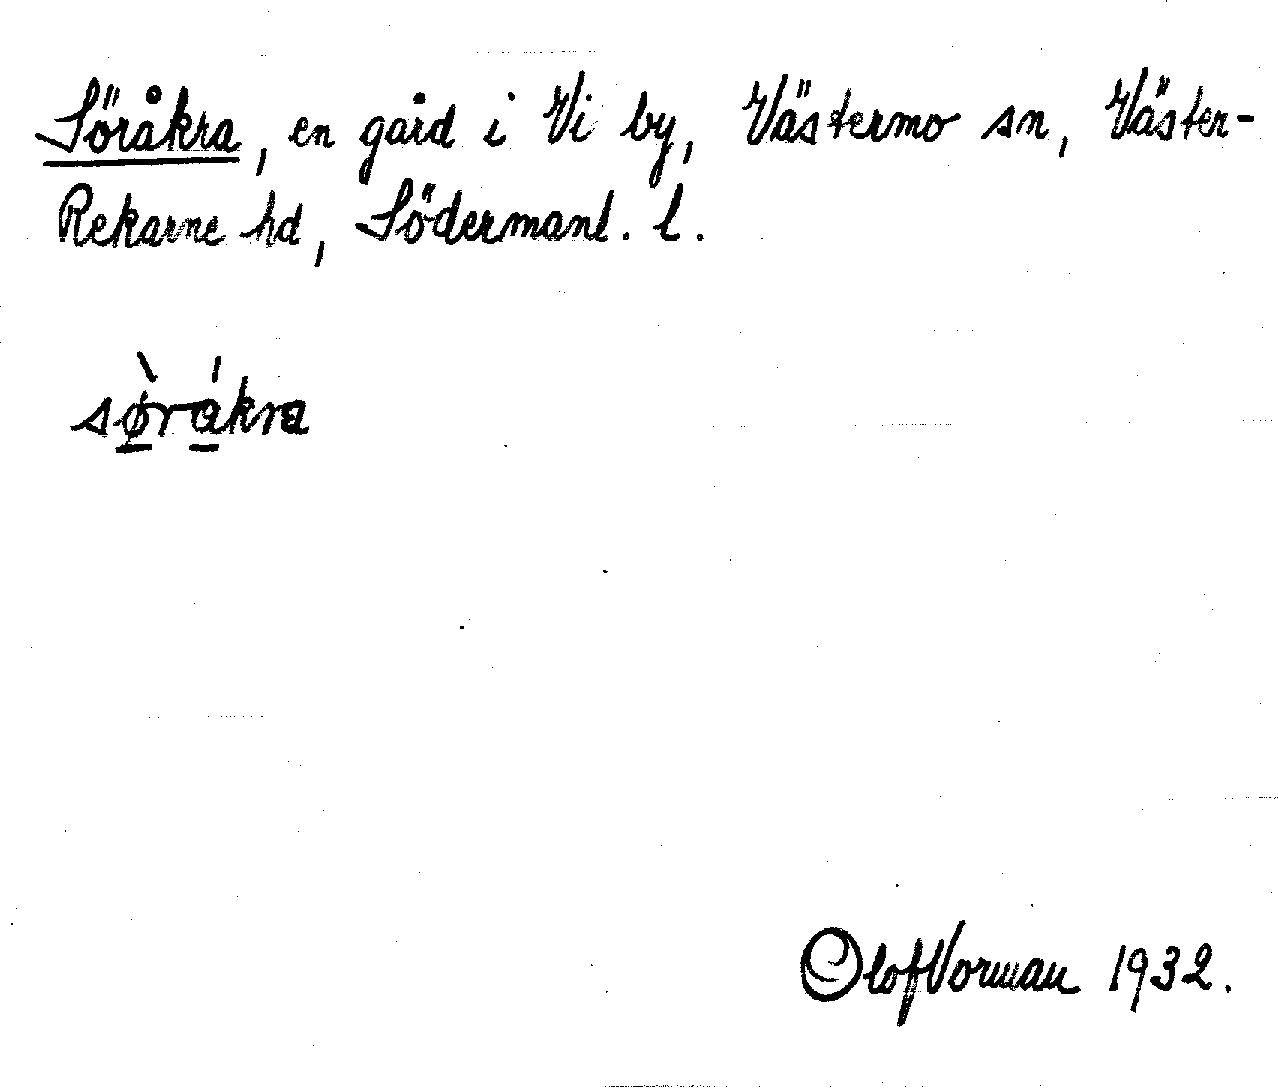 Söråkra, en gård i Vi by, Västermo sn, Väster-
Rekarne hd, Södermanl. l.
sø̀ràkra
Olof Vorman 1932.